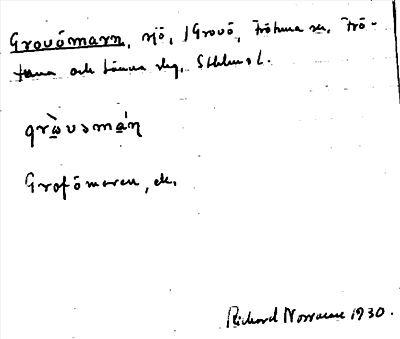 Grovömarn, sjö, i Grovö, Frötuna sn, Frö-
tuna och Länna skg, Sthlms l.
grɷ̀ʋəmáɳ
Grofömaren, ek.
Richard Norrman 1930.